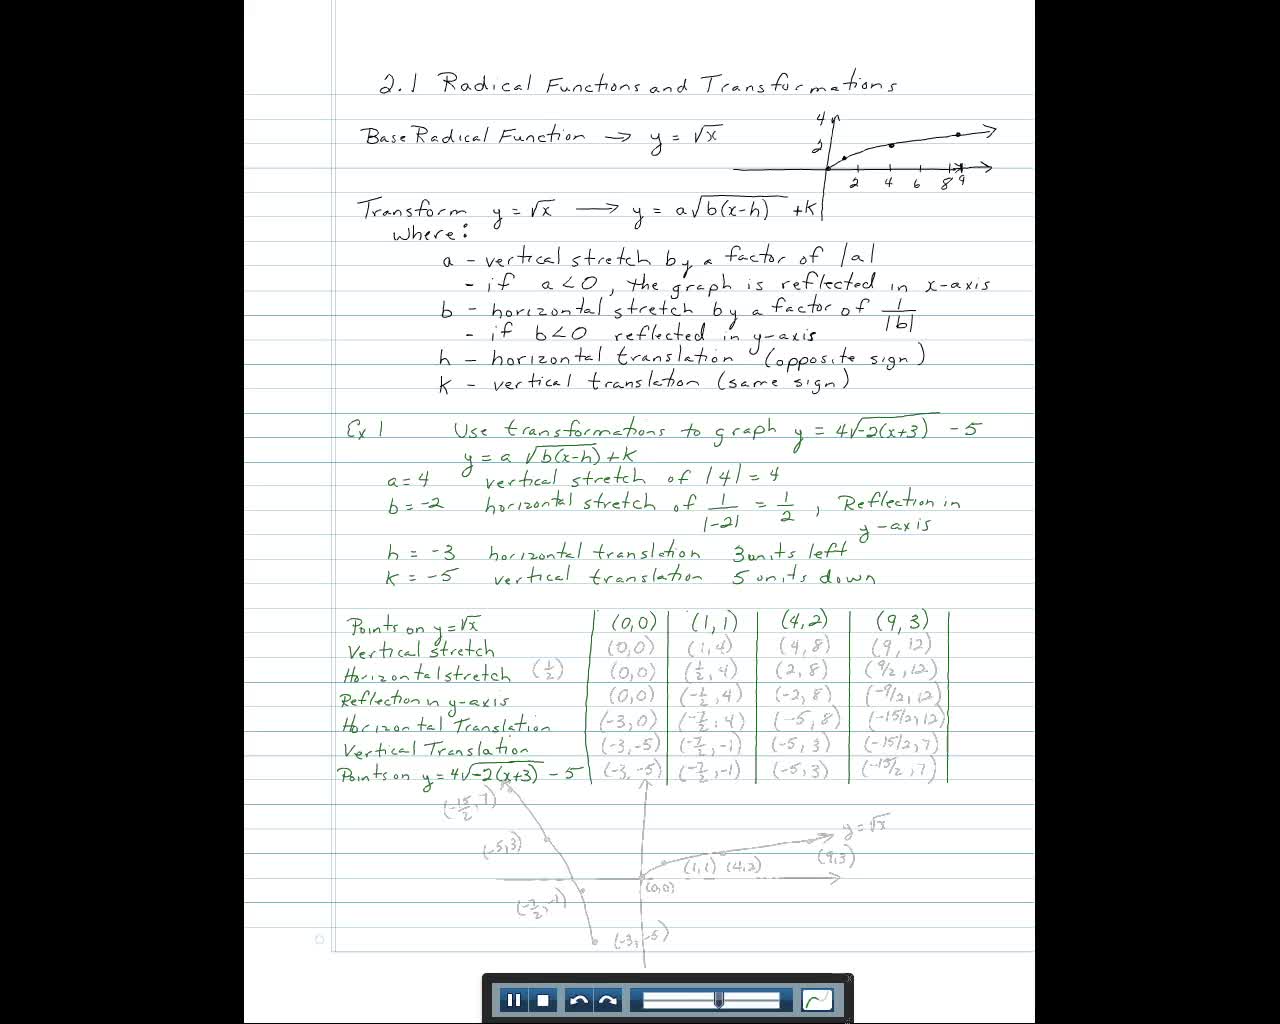 2.1 Radical Functions and Transformations
Base Radical Function → y = √x
4
2
2 4 6 8 9
Transform y = √x → y = a√b(x-h) + k
where:
a - vertical stretch by a factor of |a|
- if a < 0, the graph is reflected in x-axis
b - horizontal stretch by a factor of 1/|b|
- if b < 0 reflected in y-axis
h - horizontal translation (opposite sign)
k - vertical translation (same sign)
Ex 1 Use transformations to graph y = 4√-2(x+3) - 5
y = a √b(x-h) + k
a = 4 vertical stretch of |4| = 4
b = -2 horizontal stretch of 1/|-2| = 1/2, Reflection in
y-axis
h = -3 horizontal translation 3 units left
k = -5 vertical translation 5 units down
Points on y = √x (0,0) (1,1) (4,2) (9,3)
Vertical stretch (0,0) (1,4) (4,8) (9,12)
Horizontal stretch (1/2) (0,0) (1/2,4) (2,8) (9/2,12)
Reflection y-axis (0,0) (-1/2,4) (-2,8) (-9/2,12)
Horizontal Translation (-3,0) (-7/2,4) (-5,8) (-15/2,12)
Vertical Translation (-3,-5) (-7/2,-1) (-5,3) (-15/2,7)
Points on y = 4√-2(x+3) - 5 (-3,-5) (-7/2,-1) (-5,3) (-15/2,7)
(-15/2,7)
y = √x
(-5,3)
(1,1) (4,2) (9,3)
(0,0)
(-7/2,-1)
(-3,-5)